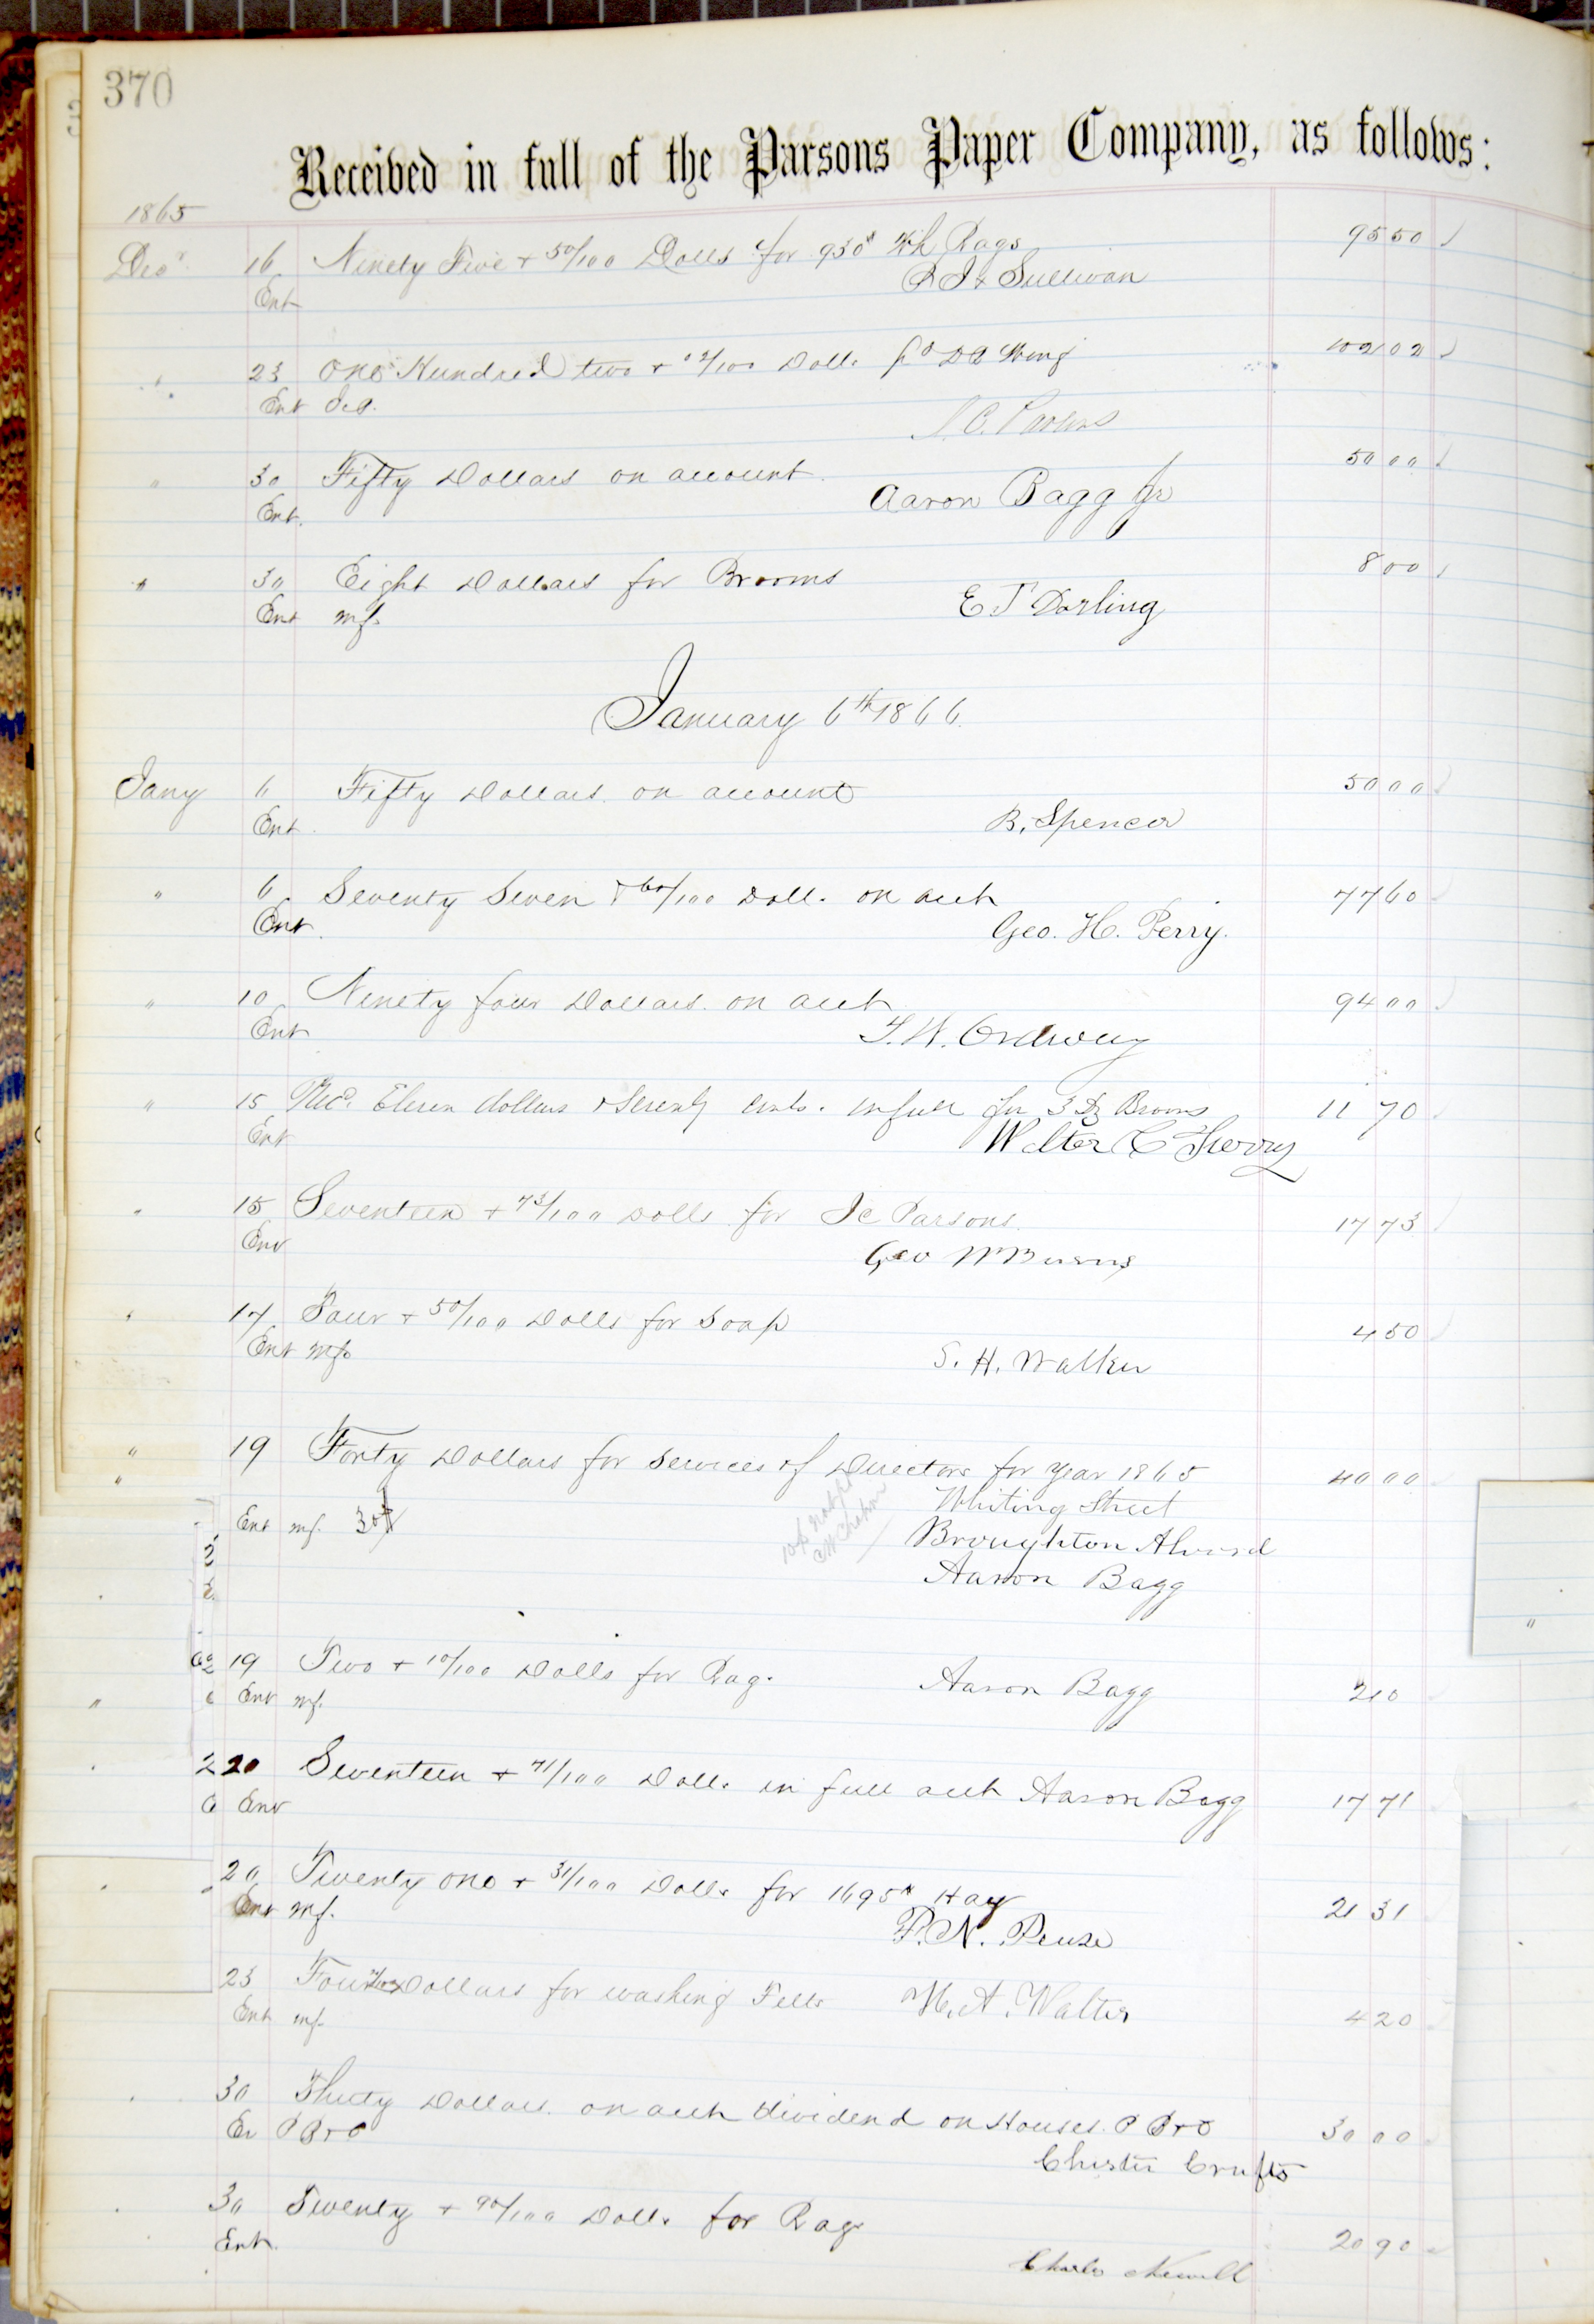 370
Received in full of the Parsons Paper Company, as follows:
1865
Decr 16 Ninety Five + 50/100 Dolls for 930# Wh Rags 95 50
Ent P J Sullivan
" 23 One Hundred two + 02/100 Dolls 102 02
Ent J. C. Parsons
" 30 Fifty Dollars on account 50 00
Ent. Aaron Bagg Jr
" 30 Eight Dollars for Brooms 8 00
Ent mf. E T Darling
January 6th 1866
Jany 6 Fifty Dollars on account 50 00
Ent B. Spencer
" 6 Seventy Seven + 60/100 Dolls on acct 77 60
Ent. Geo. H. Perry.
" 10 Ninety four Dollars on acct 94 00
Ent Ordway
" 15 Recd. Eleven dollars + Seventy Cents. in full for 3 Dz Brooms 11 70
Ent Walter C
" 15 Seventeen + 73/100 Dolls for J C Parsons 17 73
Ent Geo W Burns
" 17 Four + 50/100 Dolls for Soap 4 50
Ent mf. S. H. Walker
" 19 Forty Dollars for Services of Directors for year 1865 40 00
Whiting Street
Ent mf. 30 Broughton Alvord
Aaron Bagg
19 Two + 10/100 Dolls for Rags Aaron Bagg 2 10
" Ent mf.
20 Seventeen + 71/100 Dolls in full acct Aaron Bagg 17 71
Ent
20 Twenty one + 31/100 Dolls for 1695# Hay 21 31
Ent mf. P. N. Pease
23 Four 20/100 Dollars for washing Felts Walter 4 20
Ent mf.
30 Thirty Dollars on acct dividend on Houses P Bro 30 00
En P Bro Chester Crafts
30 Twenty + 90/100 Dolls for Rags 20 90
Ent. Charles Newell